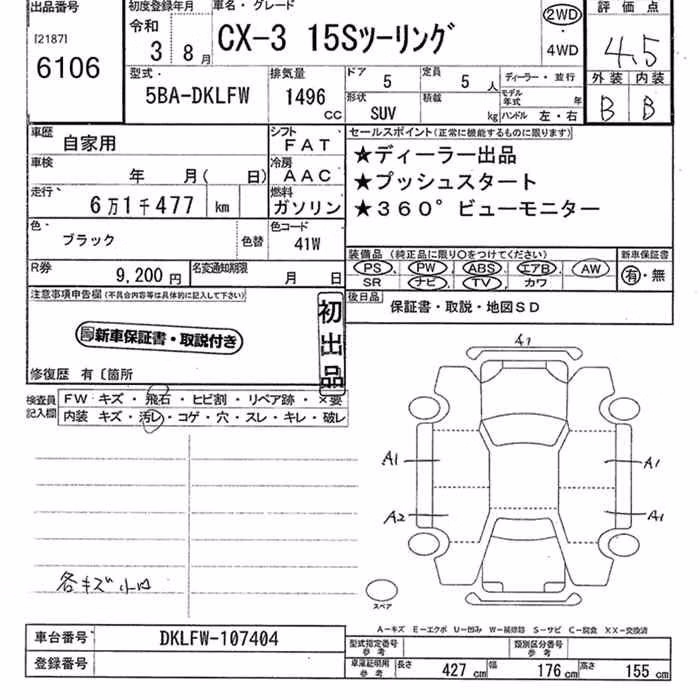 出品番号
[2187]
6106
初度登録年月
令和
3 8月
車名・グレード
CX-3 15Sツーリング
2WD
・
4WD
評価点
4.5
外装 内装
B B
型式・
5BA-DKLFW
排気量
1496
CC
ドア
5
定員
5 人
形状
SUV
積載
kg
ディーラー・並行
モデル年式 年
ハンドル 左・右
車歴
自家用
シフト
FAT
車検
年 月( 日)
冷房
AAC
走行
6万1千477 km
燃料
ガソリン
色・
ブラック
色替
色コード
41W
R券
9,200円
名変通知期限
月 日
セールスポイント(正常に機能するものに限ります)
★ディーラー出品
★プッシュスタート
★360°ビューモニター
装備品(純正品に限り○をつけてください)
PS. PW. ABS. エアB. AW
SR ナビ TV カワ
新車保証書
有・無
後日品
保証書・取説・地図SD
注意事項申告欄(不具合内容等は具体的に記入して下さい)
新車保証書・取説付き
初出品
修復歴 有〔箇所
検査員記入欄
FW キズ・飛石・ヒビ割・リペア跡・×要
内装 キズ・汚レ・コゲ・穴・スレ・キレ・破レ
A1
A1
A1
A2
A1
各キズ小凹
スペア
A－キズ E－エクボ U－凹み W－補修跡 S－サビ C－腐食 XX－交換済
車台番号
DKLFW-107404
登録番号
型式指定番号
参考
類別区分番号
参考
車庫証明用
参考
長さ 427 cm 幅 176 cm 高さ 155 cm